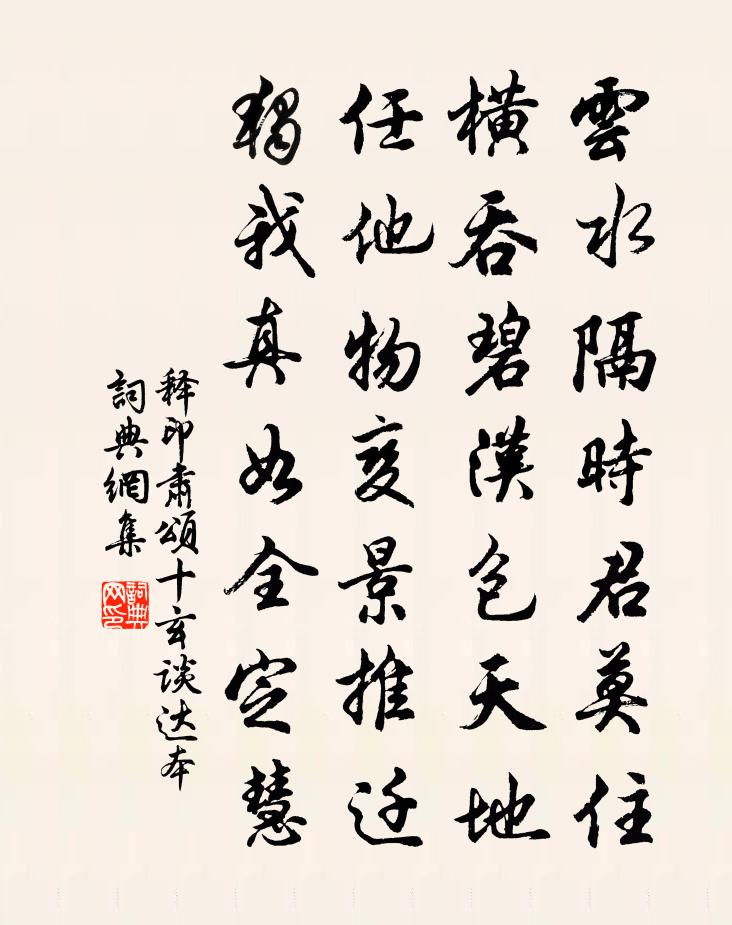 雲水隔時君莫住
橫吞碧漢包天地
任他物变景推迁
獨我真如全定慧
释印肅頌十玄談达本
詞典網集
詞典網印